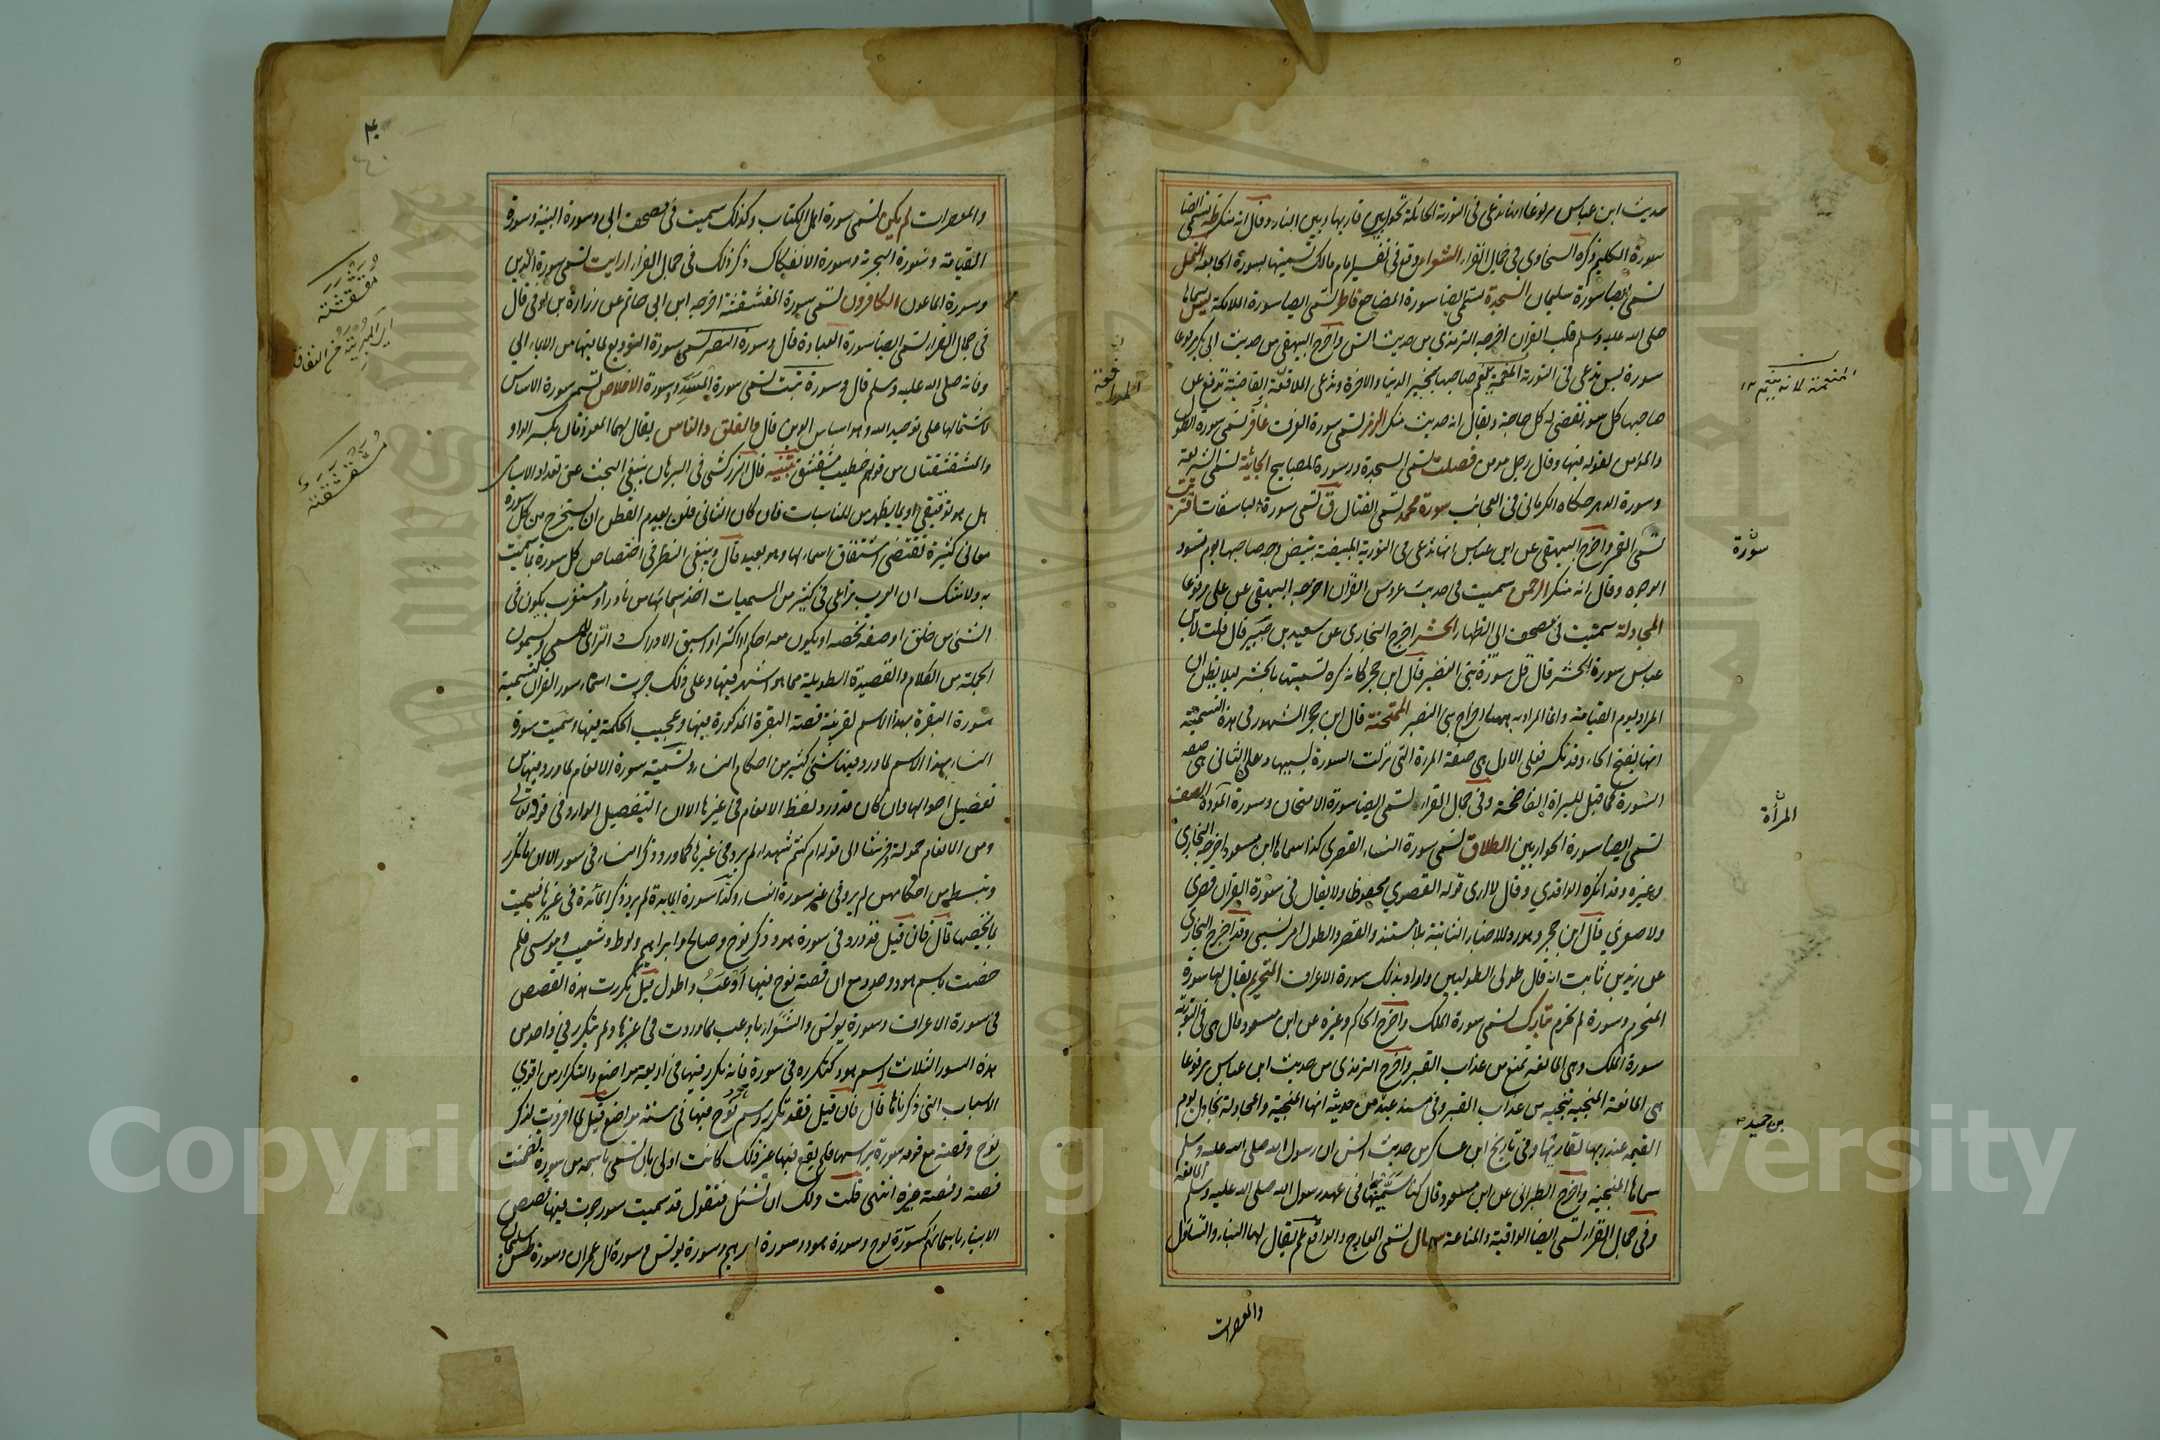 حديث ابن عباس مرفوعا انها تدعى في التورية الحائلة تحول بين قاريها وبين النار وقال انه منكر طه تسمى ايضا
سورة الكليم ذكره السخاوي في جمال القراء الشعراء وقع في تفسير امام مالك تسميتها بسورة الجامعة النمل
تسمى ايضا سورة سليمان السجدة تسمى ايضا سورة المضاجع فاطر تسمى ايضا سورة الملائكة يس سماها
صلى الله عليه وسلم قلب القران اخرجه الترمذي من حديث انس واخرج البيهقي من حديث ابي بكر مرفوعا
سورة يس تدعى في التورية المعمة تعم صاحبها بخير الدنيا والاخرة وتدعى الدافعة القاضية تدفع عن
صاحبها كل سوء وتقضي له كل حاجة وقال انه حديث منكر الزمر تسمى سورة الغرف غافر تسمى سورة الطول
والمؤمن لقوله فيها وقال رجل مومن فصلت تسمى السجدة وسورة المصابيح الجاثية تسمى الشريعة
وسورة الدهر حكاه الكرماني في العجائب سورة محمد تسمى القتال ق تسمى سورة الباسقات اقتربت
تسمى القمر واخرج البيهقي عن ابن عباس انها تدعى في التورية المبيضة تبيض وجه صاحبها يوم تسود
الوجوه وقال انه منكر الرحمن سميت في حديث عروس القرآن اخرجه البيهقي عن علي مرفوعا
المجادلة سميت في مصحف ابي الظهار الحشر اخرج البخاري عن سعيد بن جبير قال قلت لابن
عباس سورة الحشر قال قل سورة بني النضير قال ابن حجر كانه كره تسميتها بالحشر ليلا يظن ان
المراد يوم القيامة وانما المراد به ههنا اخراج بني النضير الممتحنة قال ابن حجر المشهور في هذه التسمية
انها بفتح الحاء وقد تكسر فعلى الاول هي صفة المراة التي نزلت السورة بسببها وعلى الثاني هي صفة
السورة كما قيل لبراة الفاضحة وفي جمال القراء تسمى ايضا سورة الامتحان وسورة المودة الصف
تسمى ايضا سورة الحواريين الطلاق تسمى سورة النساء القصرى كذا سماها ابن مسعود اخرجه البخاري
وغيره وقد انكره الداودي وقال لا ارى قوله القصوي محفوظا ولا يقال في سورة القران قصرى
ولا صغرى قال ابن حجر وهو رد للاخبار الثابتة بلا مستند والقصر والطول امر نسبي وقد اخرج البخاري
عن زيد بن ثابت انه قال طولى الطوليين واراد بذلك سورة الاعراف التحريم يقال لها سورة
المتحرم وسورة لم تحرم تبارك تسمى سورة الملك واخرج الحاكم وغيره عن ابن مسعود قال هي في التورية
سورة الملك وهي المانعة تمنع من عذاب القبر واخرج الترمذي من حديث ابن عباس مرفوعا
هي المانعة المنجية تنجيه من عذاب القبر وفي مسند عبد من حديثه انها المنجية والمجادلة تجادل يوم
القيمة عند ربها لقاريها وفي تاريخ ابن عساكر من حديث انس ان رسول الله صلى الله عليه وسلم
سماها المنجية واخرج الطبراني عن ابن مسعود قال كنا نسميها في عهد رسول الله صلى الله عليه وسلم المانعة
وفي جمال القراء تسمى ايضا الواقية والمناعة سأل تسمى المعارج والواقع عم يقال لها النبا والتساؤل
والمعصرات
المعمة لانه
سورة
المرأة
بن حميد
والمعصرات لم يكن تسمى سورة اهل الكتاب وكذلك سميت في مصحف ابي وسورة البينة وسورة
القيامة وسورة البرية وسورة الانفكاك ذكر ذلك في جمال القراء ارايت تسمى سورة الدين
وسورة الماعون الكافرون تسمى سورة المقشقشة اخرجه ابن ابي حاتم عن زرارة بن اوفى قال
في جمال القراء تسمى ايضا سورة العبادة قال وسورة النصر تسمى سورة التوديع لما فيها من الايماء الى
وفاته صلى الله عليه وسلم قال وسورة تبت تسمى سورة المسد وسورة الاخلاص تسمى سورة الاساس
لاشتمالها على توحيد الله وهو اساس الدين قال والفلق والناس يقال لهما المعوذتان بكسر الواو
والمشقشقتان من قولهم خطيب مشقشق تنبيه قال الزركشي في البرهان ينبغي البحث عن تعداد الاسامي
هل هو توقيفي او بما يظهر من المناسبات فان كان الثاني فلن يعدم الفطن ان يستخرج من كل سورة
معاني كثيرة تقتضي اشتقاق اسماء لها وهو بعيد قال وينبغي النظر في اختصاص كل سورة بما سميت
به ولا شك ان العرب تراعي في كثير من المسميات اخذ اسمائها من نادر او مستغرب يكون في
الشئ من خلق او صفة تخصه او يكون معه احكم او اكثر او اسبق الادراك الرائي للمسمى ويسمون
الجملة من الكلام والقصيدة الطويلة مما هو اشهر فيها وعلى ذلك جرت اسماء سور القران كتسمية
سورة البقرة بهذا الاسم لقرينة قصة البقرة المذكورة فيها وعجيب الحكمة فيها وسميت سورة
النساء بهذا الاسم لما ورد فيها شئ كثير من احكام النساء وتسمية سورة الانعام لما ورد فيها من
تفصيل احوالها وان كان قد ورد لفظ الانعام في غيرها الا ان التفصيل الوارد في قوله تعالى
ومن الانعام حمولة وفرشا الى قوله ام كنتم شهداء لم يرد في غيرها كما ورد ذكر النساء في سور الا ان ما تكرر
وتبسط من احكامهن لم يرد في غير سورة النساء وكذا سورة المايدة لم يرد ذكر المائدة في غيرها فسميت
بما يخصها قال فان قيل قد ورد في سورة هود ذكر نوح وصالح وابراهيم ولوط وشعيب وموسى فلم
خصت باسم هود وحده مع ان قصة نوح فيها اوعب واطول قيل تكررت هذه القصص
في سورة الاعراف وسورة يونس والشعراء باوعب مما وردت في غيرها ولم يتكرر في واحدة من
هذه السور الثلاث اسم هود كتكرره في سورة فانه تكرر فيها في اربعة مواضع والتكرار من اقوى
الاسباب التي ذكرناها قال فان قيل فقد تكرر اسم نوح فيها في ستة مواضع قيل لما افردت لذكر
نوح وقصته مع قومه سورة براسها فلم يقع فيها غير ذلك كانت اولى بان تسمى باسمه من سورة تضمنت
قصته وقصة غيره انتهى قلت ولك ان تسئل فتقول قد سميت سور جرت فيها قصص
الانبياء باسمائهم كسورة نوح وسورة هود وسورة ابراهيم وسورة يونس وسورة ال عمران وسورة طس سليمان
مقشقشة
مشقشقة